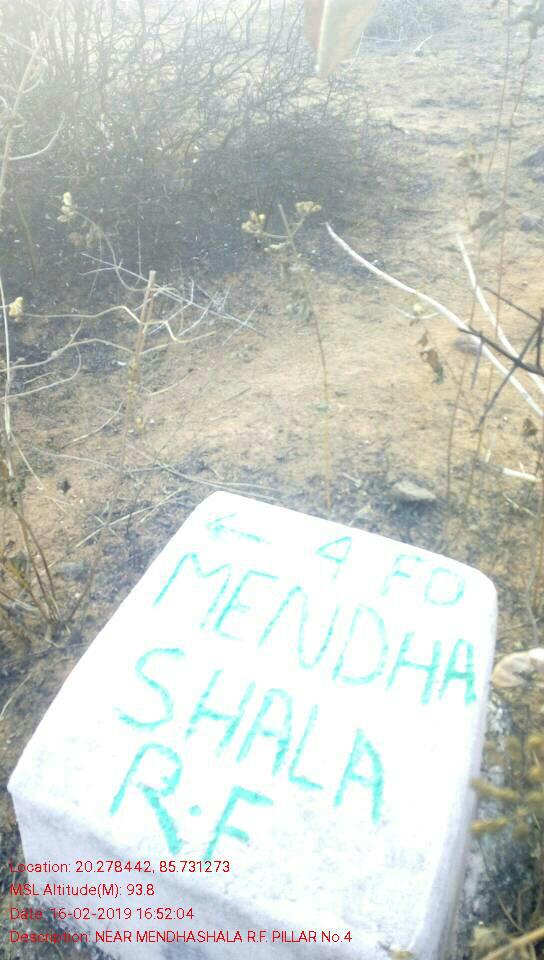 ← 4 FD
MENDHA
SHALA
R.F
Location: 20.278442, 85.731273
MSL Altitude(M): 93.8
Date: 16-02-2019 16:52:04
Description: NEAR MENDHASHALA R.F. PILLAR No.4